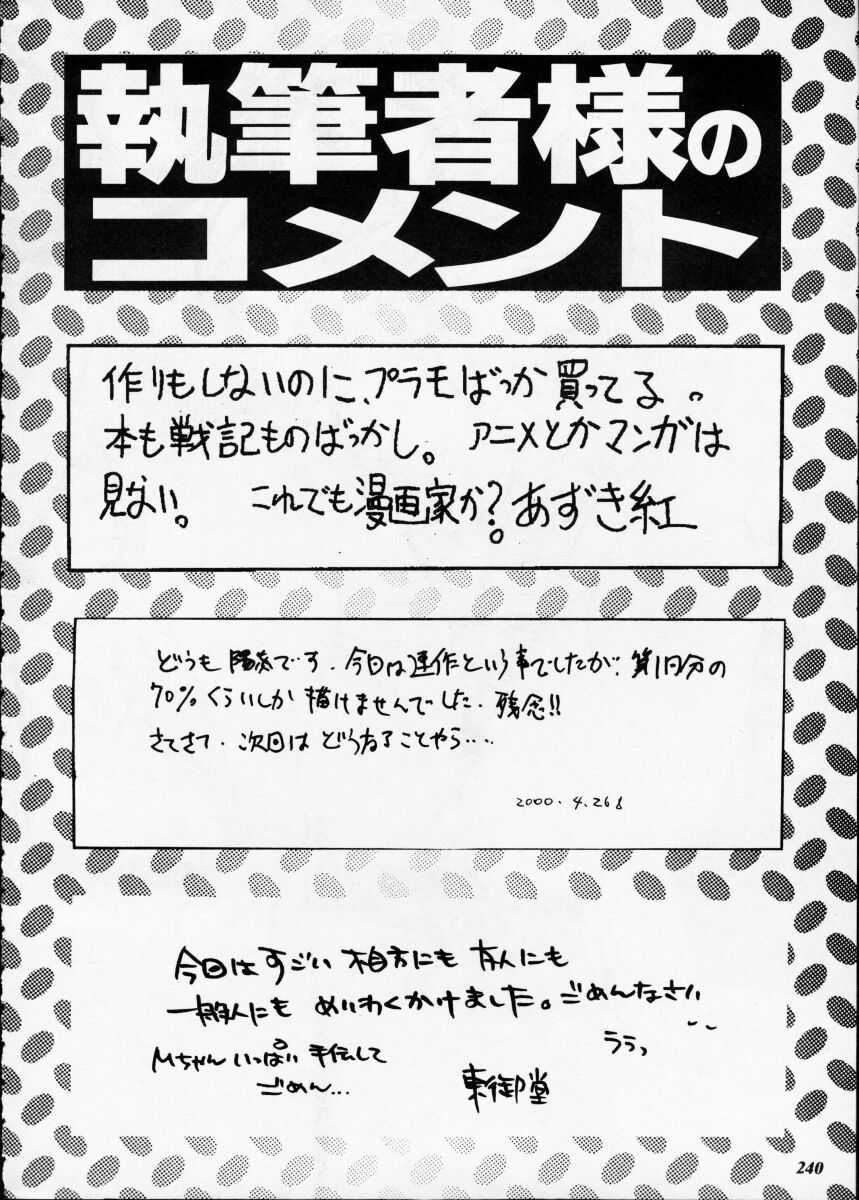 執筆者様の
コメント
作りもしないのに、プラモばっか買ってる。
本も戦記ものばっかし。アニメとかマンガは
見ない。これでも漫画家か?。あずき紅
どうも陽炎です。今回は連作という事でしたが、第1回分の
70%くらいしか描けませんでした。残念!!
さてさて、次回はどうなることやら‥‥
2000.4.26
今回はすごい相方にも友人にも
一般人にもめいわくかけました。ごめんなさい
ううっ
Mちゃんいっぱい手伝して
ごめん...
東御堂
240